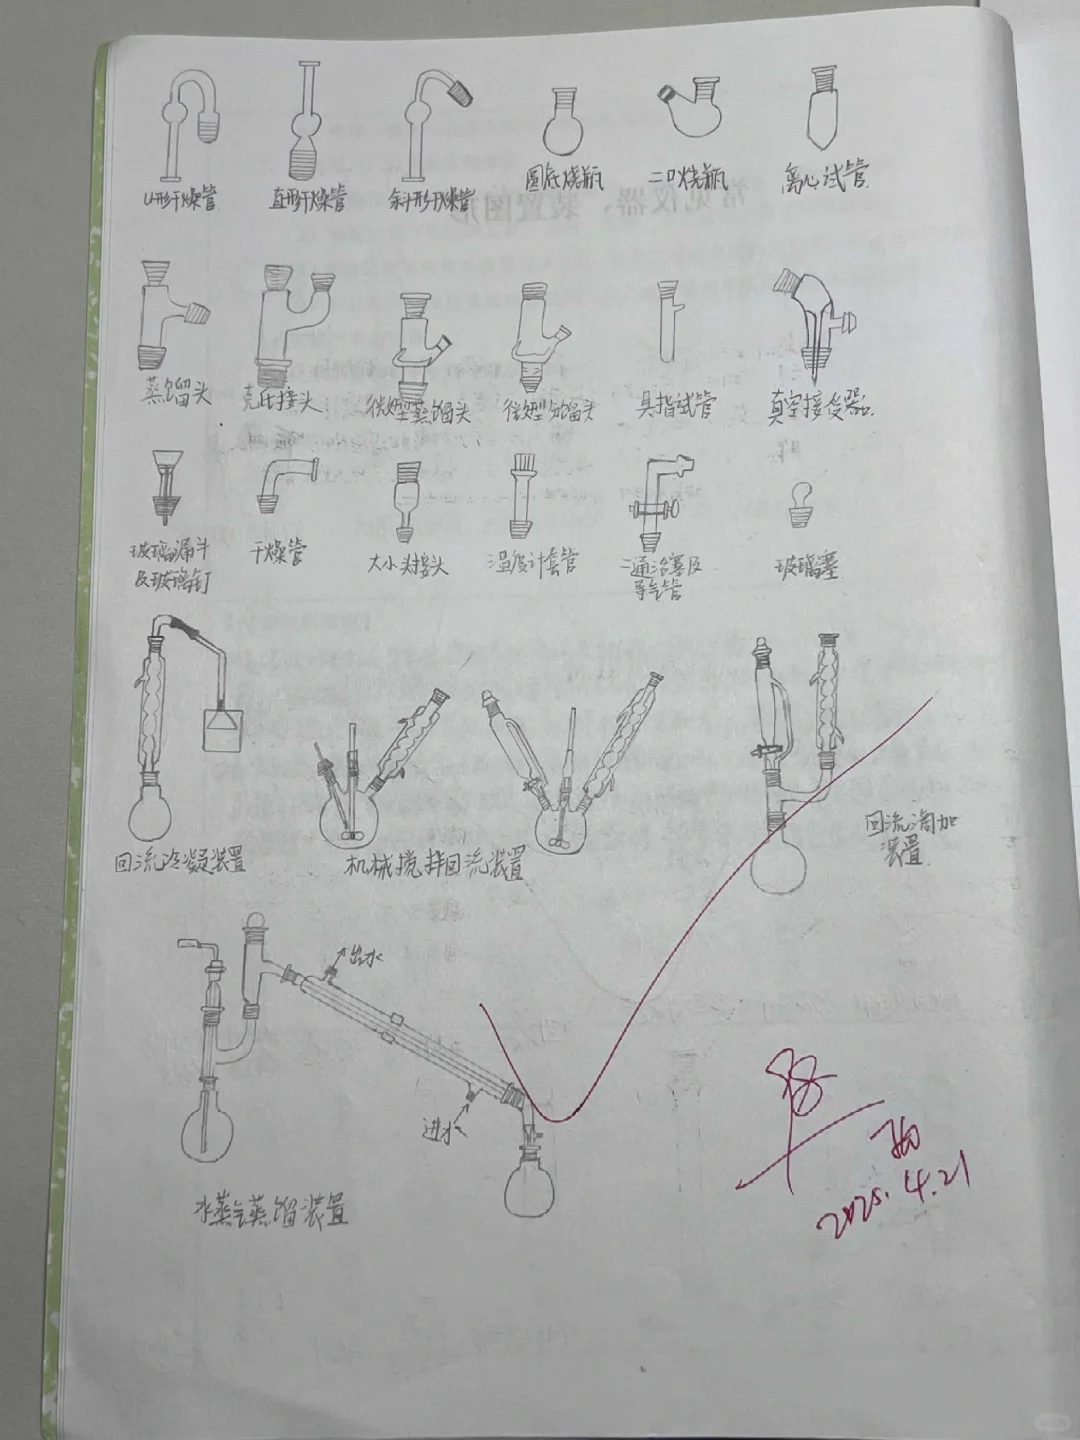 U形干燥管 直形干燥管 斜形干燥管 圆底烧瓶 二口烧瓶 离心试管
蒸馏头 克氏接头 微型蒸馏头 微型分馏头 具指试管 真空接受器
玻璃漏斗
及玻璃钉
干燥管 大小头接头 温度计套管
二通活塞及
导气管
玻璃塞
回流冷凝装置 机械搅拌回流装置
回流滴加
装置
出水
进水
水蒸气蒸馏装置
2025.4.21